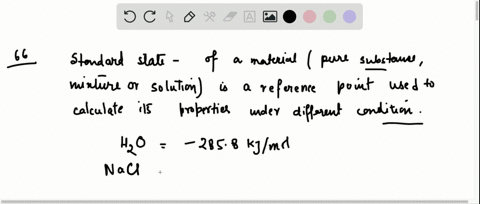 66 Standard state - of a material ( pure substance,
mixture or solution) is a reference point used to
calculate its properties under different condition.
H₂O = -285.8 kJ/mol
NaCl :